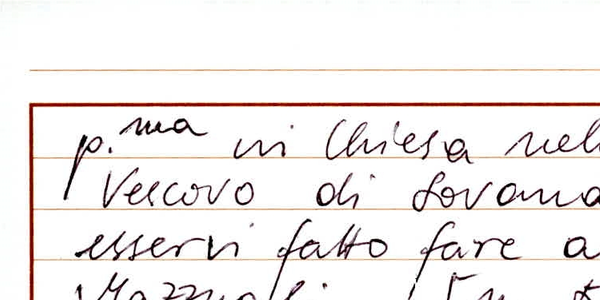 p.ma in Chiesa nel
Vescovo di Sovana
esservi fatto fare a